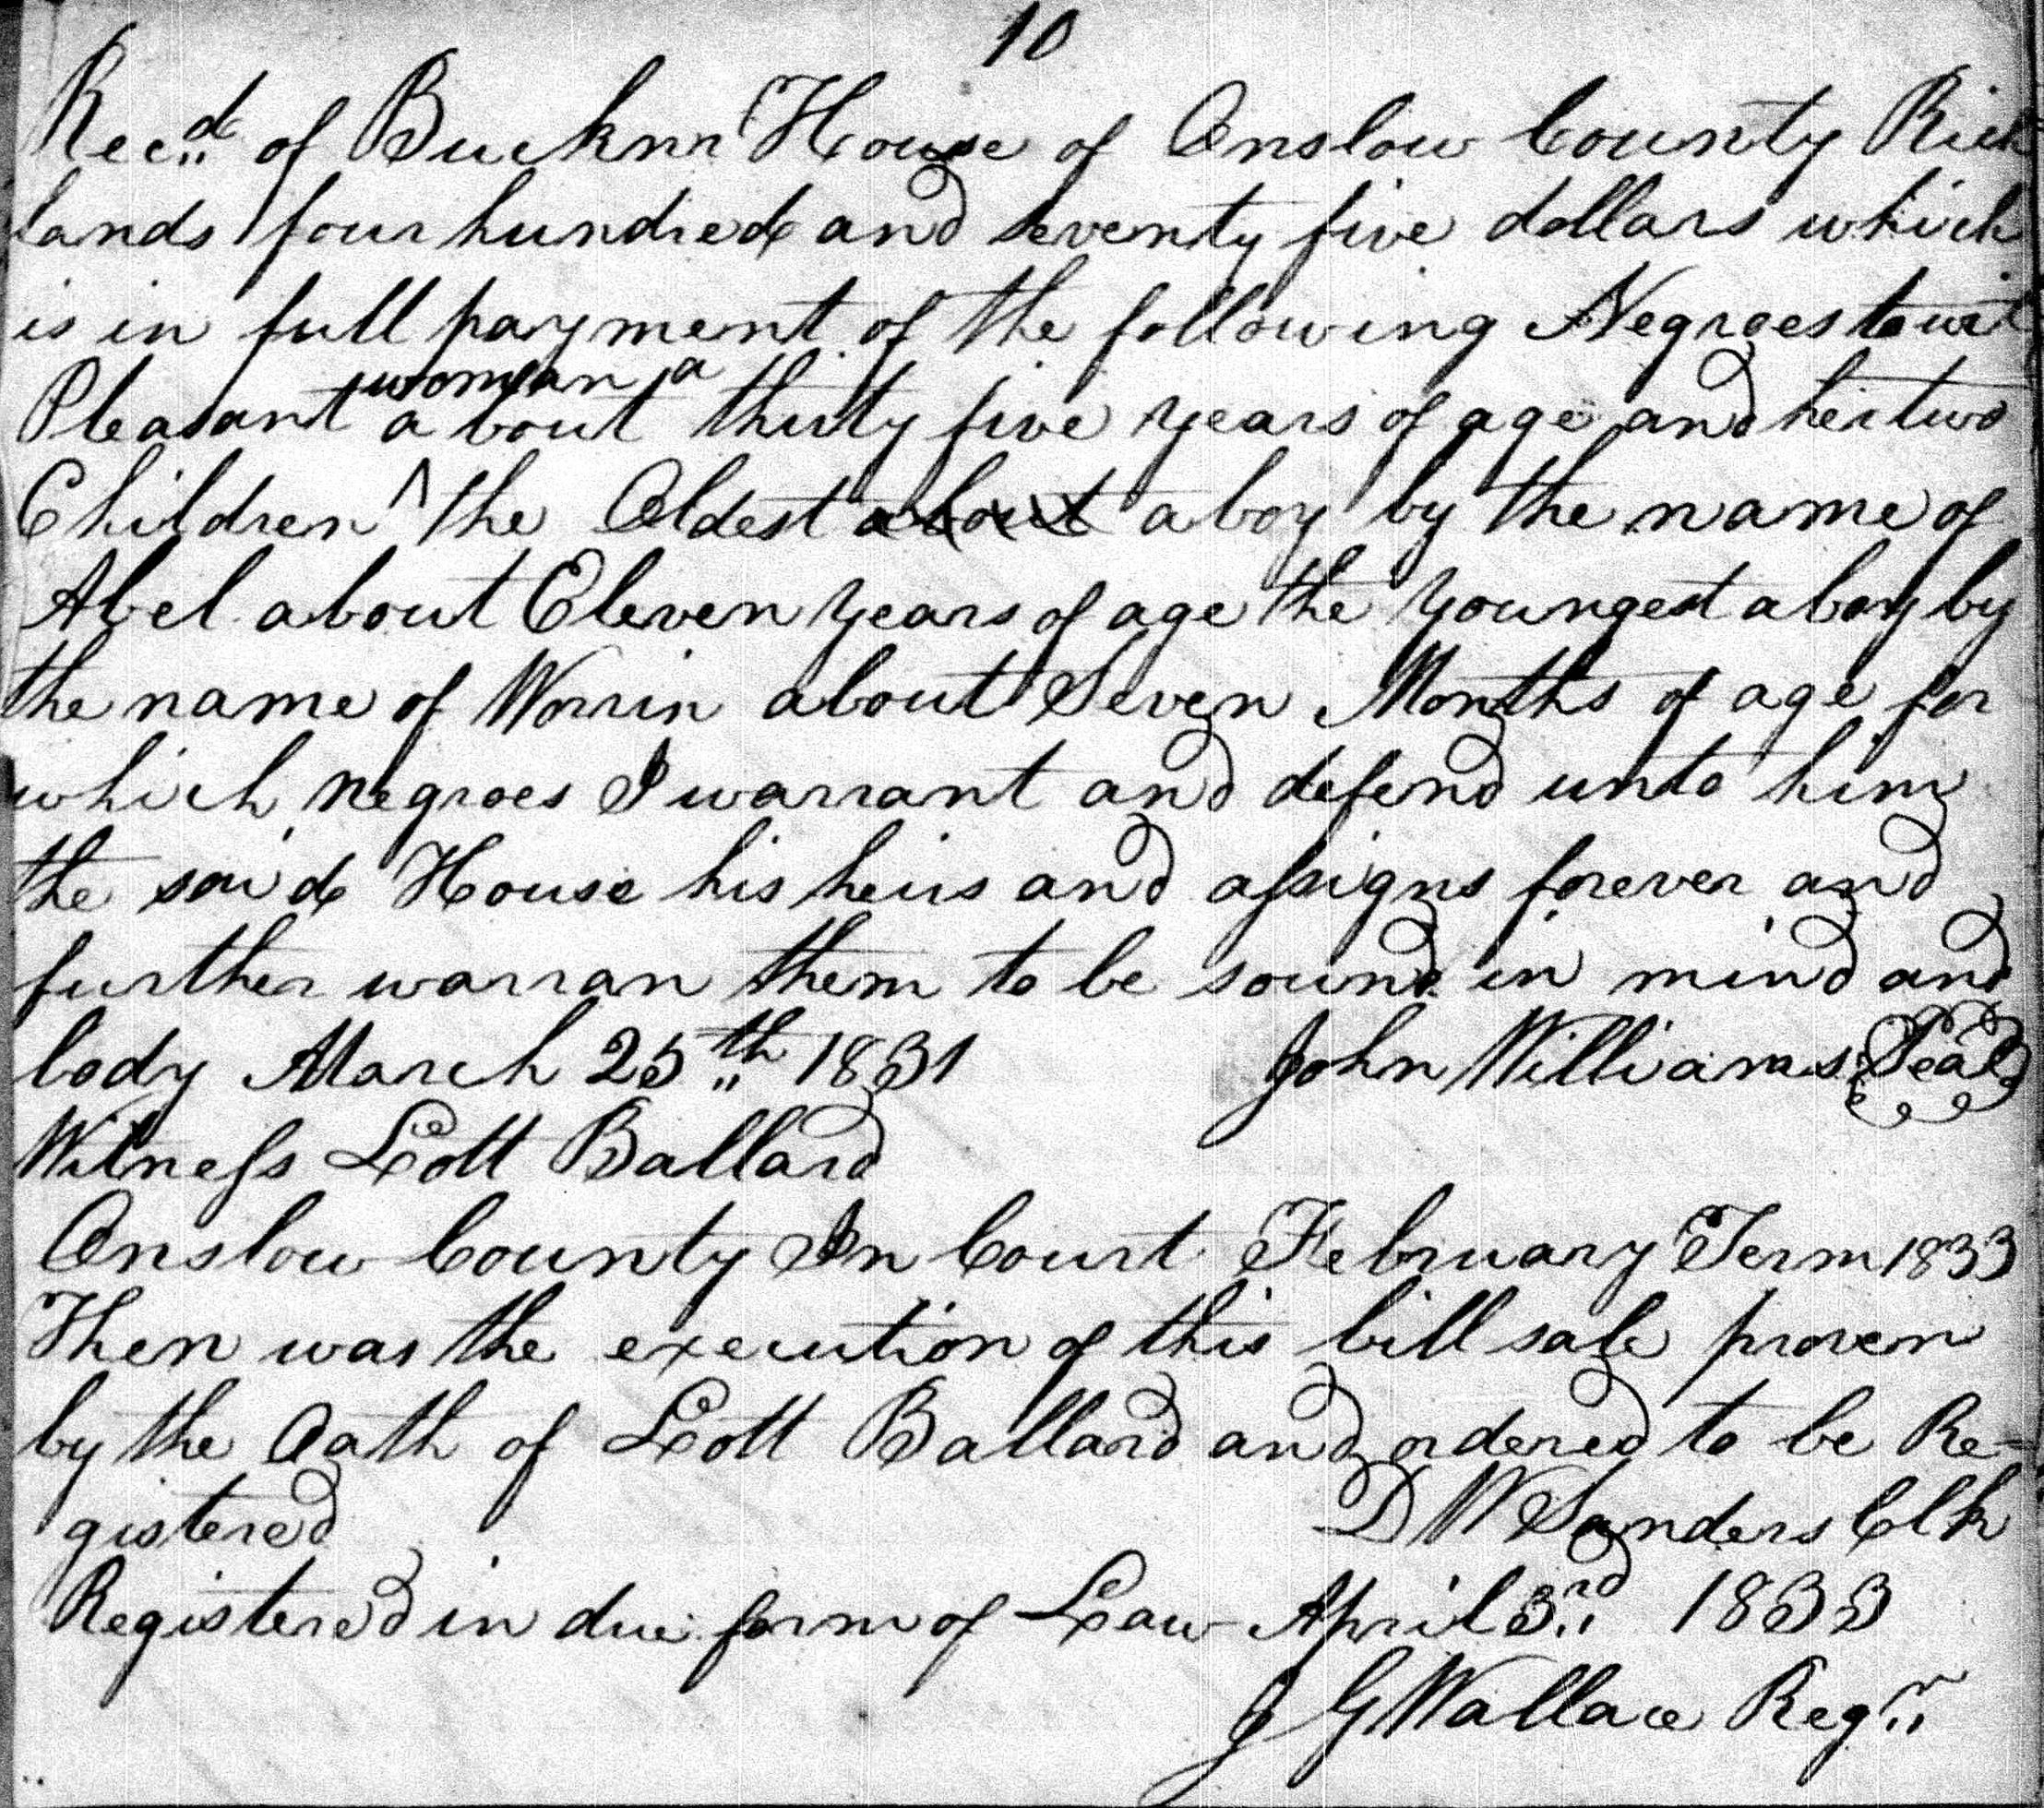 10
Recd of Bucknr House of Onslow County Rich
lands four hundred and seventy five dollars which
is in full payment of the following Negroes towit
woman a
Pleasant about thirty five years of age and her two
Children ^ the Oldest about a boy by the name of
Abel about Eleven years of age the youngest a boy by
the name of Worrin about Seven Months of age for
which negroes I warrant and defend unto him
the said House his heirs and assigns forever and
further warran them to be sound in mind and
body March 25th 1831 John Williams Seal
Witness Lott Ballard
Onslow County In Court February Term 1833
Then was the execution of this bill sale proven
by the Oath of Lott Ballard and ordered to be Re-
gistered D W Sanders Clk
Registered in due form of Law April 3rd 1833
J G Wallace Regr